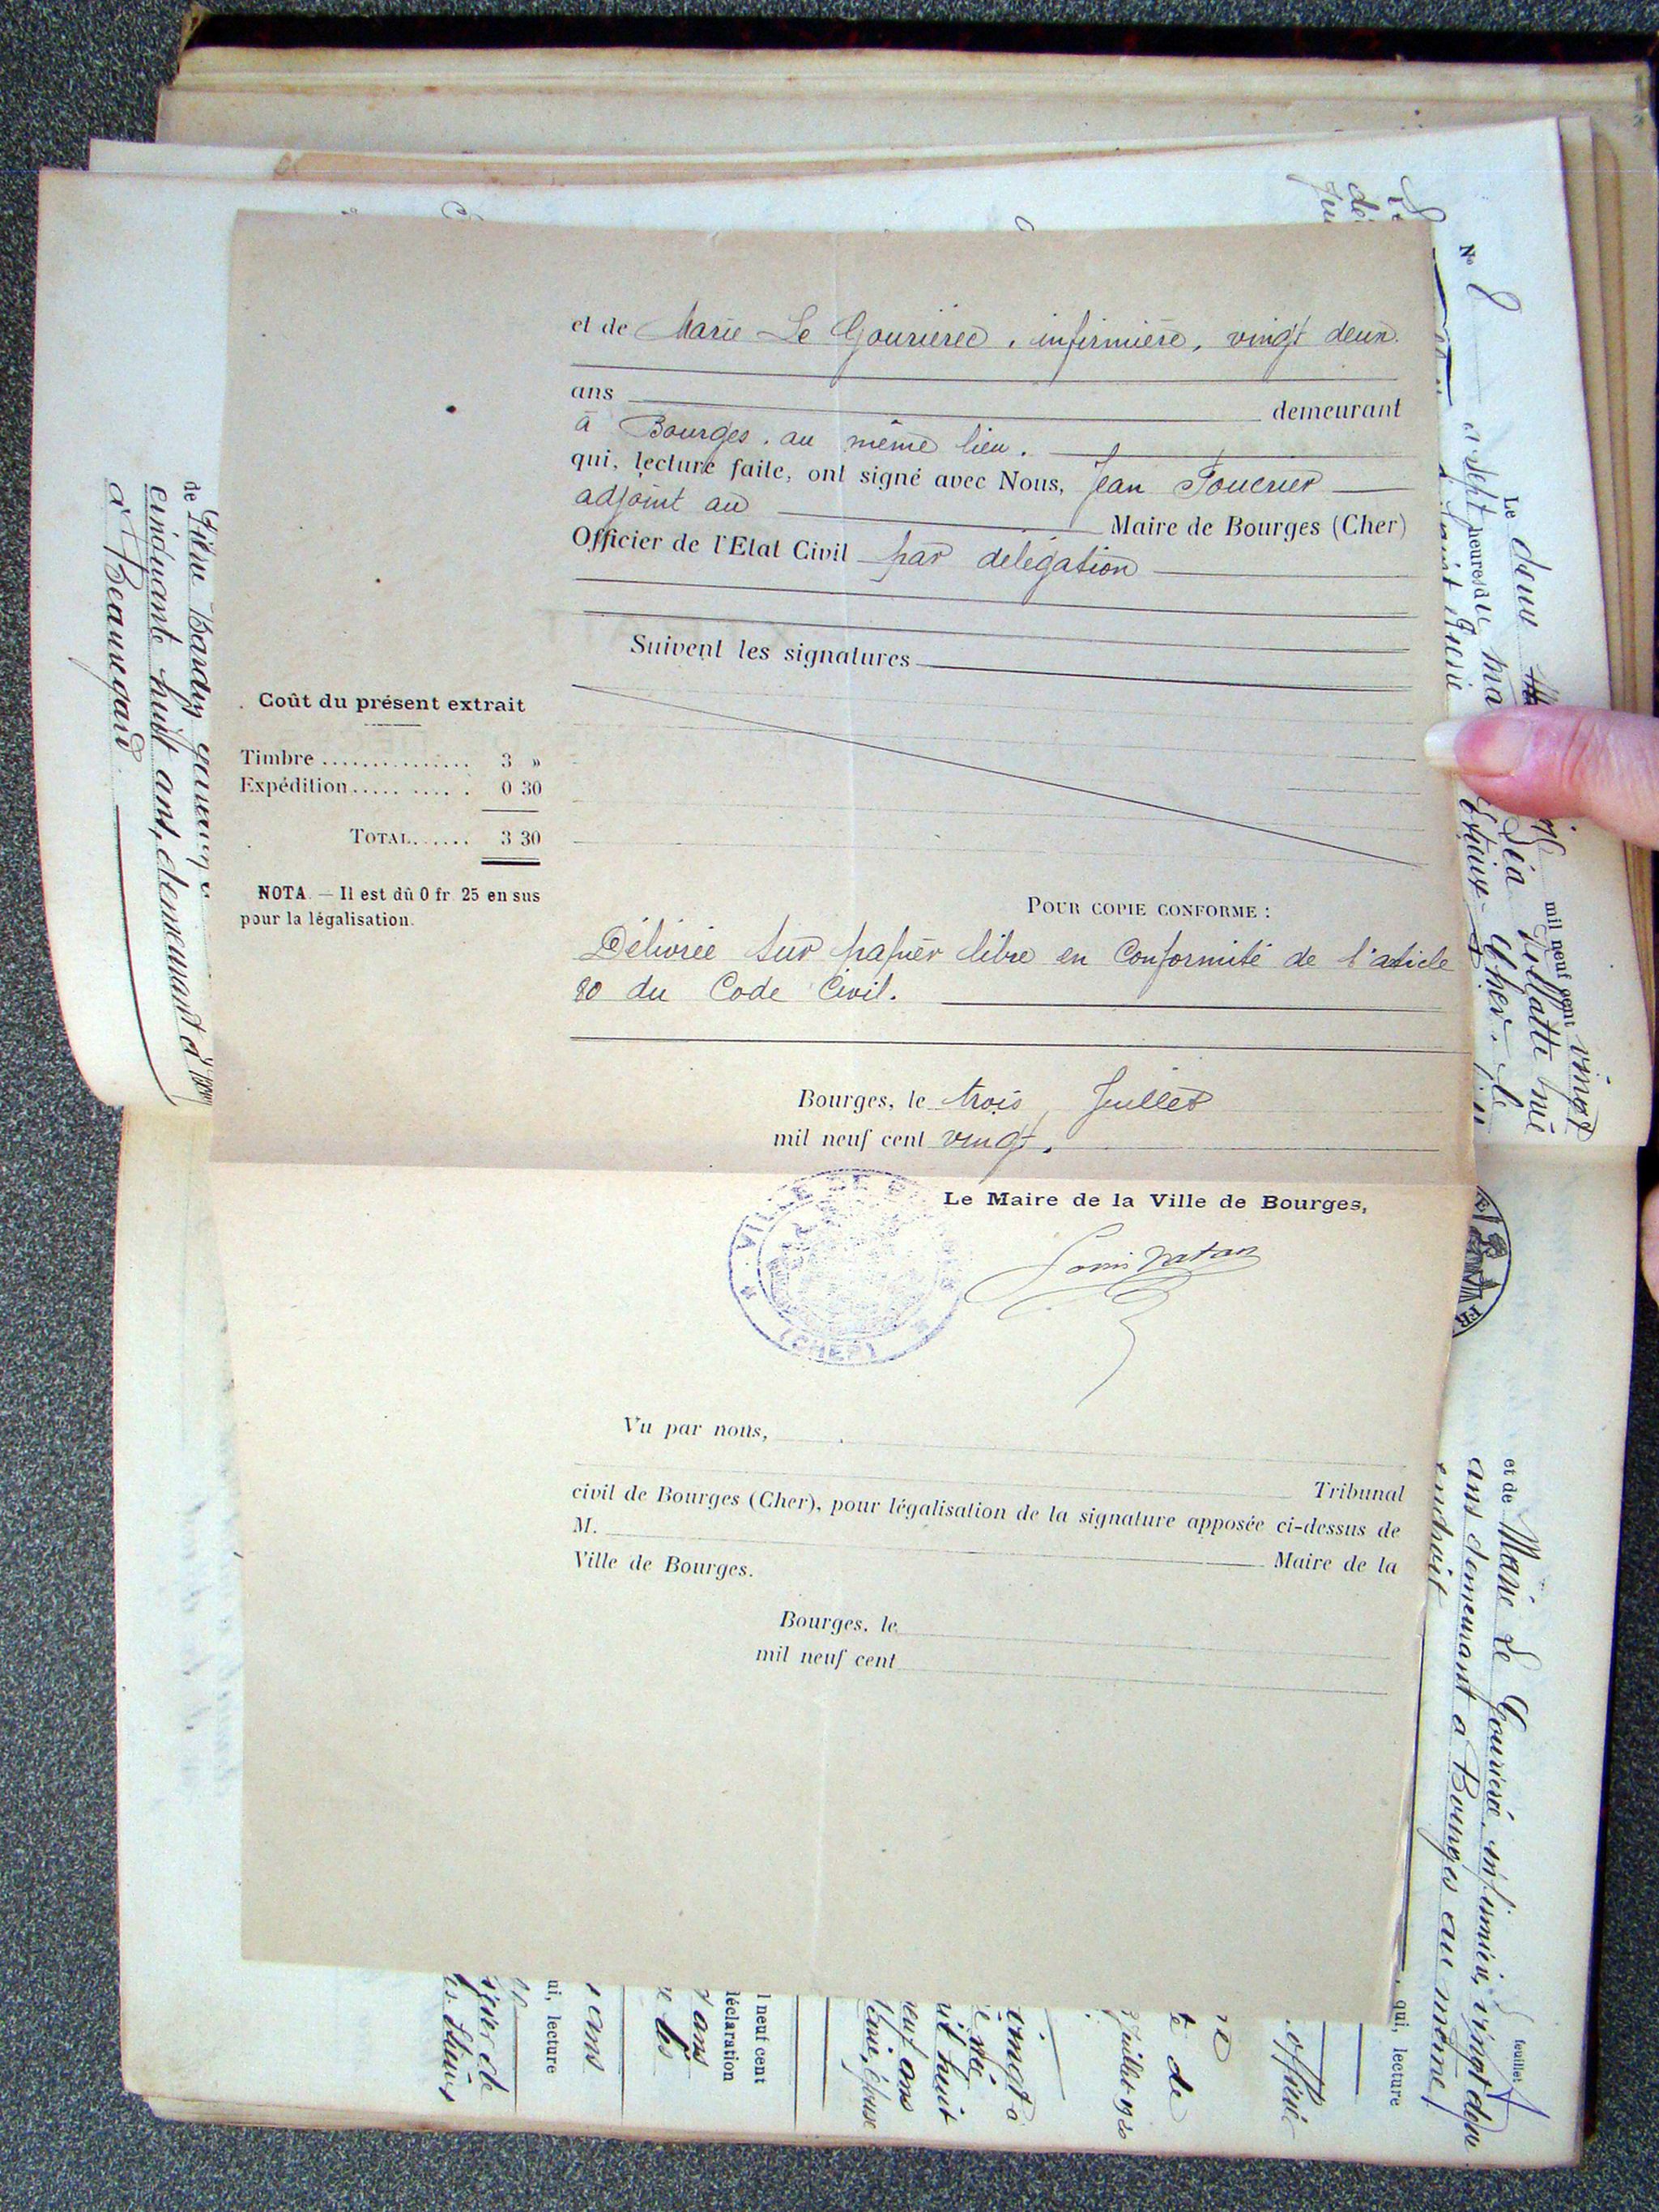 et de Marie Le Gouriérec, infirmière, vingt deux
ans demeurant
à Bourges, au même lieu.
qui, lecture faite, ont signé avec Nous, Jean
adjoint au Maire de Bourges (Cher)
Officier de l'Etat Civil par délégation
Suivent les signatures
Coût du présent extrait
Timbre ............... 3 »
Expédition..... ..... . 0 30
TOTAL....... 3 30
NOTA. — Il est dû 0 fr. 25 en sus
pour la légalisation.
POUR COPIE CONFORME :
Délivrée sur papier libre en conformité de l'article
80 du Code Civil.
Bourges, le trois Juillet
mil neuf cent vingt.
Le Maire de la Ville de Bourges,
VILLE DE
(CHER)
Vu par nous,
Tribunal
civil de Bourges (Cher), pour légalisation de la signature apposée ci-dessus de
M. Maire de la
Ville de Bourges.
Bourges, le
mil neuf cent
de
cinquante huit ans, demeurant à
à Beauregard
N° 8
Le deux
mil neuf cent vingt
à sept heures du ma
Cher, le
feuillet
et de Marie Le Gouriérec, infirmière, vingt deux
ans demeurant à Bourges au même
endroit
qui, lecture
Juillet 1920
vingt
huit
ans
épouse
l neuf cent
déclaration
ans
ans
ui, lecture